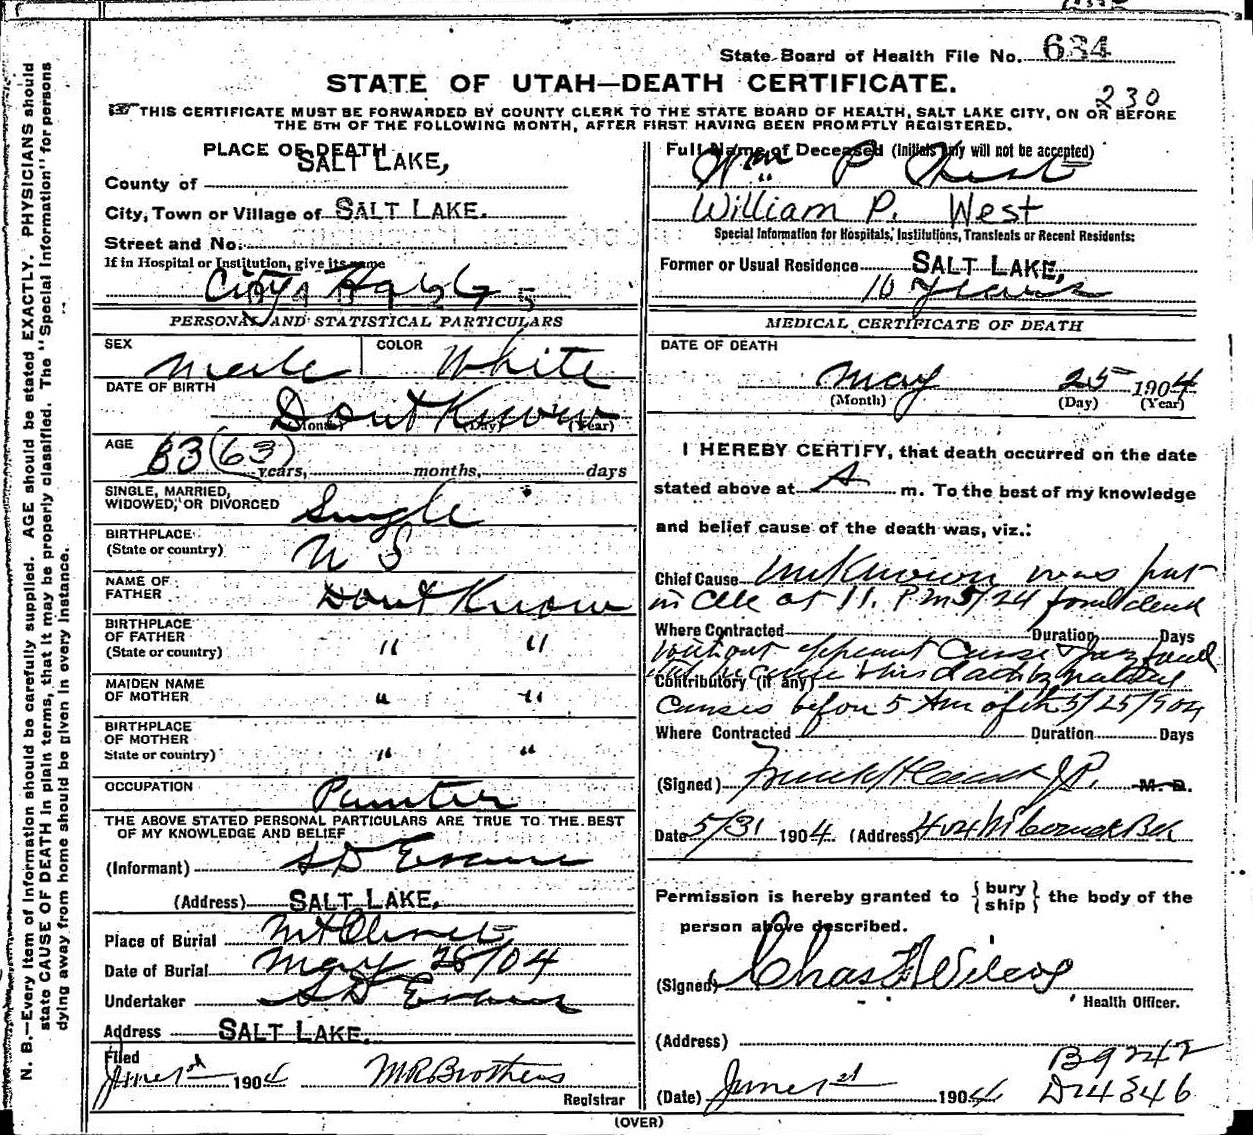 State Board of Health File No. 634
STATE OF UTAH—DEATH CERTIFICATE.
230
☞ THIS CERTIFICATE MUST BE FORWARDED BY COUNTY CLERK TO THE STATE BOARD OF HEALTH, SALT LAKE CITY, ON OR BEFORE
THE 5TH OF THE FOLLOWING MONTH, AFTER FIRST HAVING BEEN PROMPTLY REGISTERED.
N. B.—Every item of information should be carefully supplied. AGE should be stated EXACTLY. PHYSICIANS should
state CAUSE OF DEATH in plain terms, that it may be properly classified. The "Special Information" for persons
dying away from home should be given in every instance.
PLACE OF DEATH
County of SALT LAKE,
City, Town or Village of SALT LAKE.
Street and No.
If in Hospital or Institution, give its name
City
PERSONAL AND STATISTICAL PARTICULARS
SEX Male COLOR White
DATE OF BIRTH Dont Know
(Month) (Day) (Year)
AGE 63 (63) years, months, days
SINGLE, MARRIED,
WIDOWED, OR DIVORCED Single
BIRTHPLACE
(State or country) N S
NAME OF
FATHER Dont Know
BIRTHPLACE
OF FATHER
(State or country) " "
MAIDEN NAME
OF MOTHER " "
BIRTHPLACE
OF MOTHER
State or country) " "
OCCUPATION Painter
THE ABOVE STATED PERSONAL PARTICULARS ARE TRUE TO THE BEST
OF MY KNOWLEDGE AND BELIEF
(Informant) S D Evans
(Address) SALT LAKE,
Place of Burial Mt Olivet
Date of Burial May 28/04
Undertaker S D Evans
Address SALT LAKE.
Filed
June 1st 1904 M R Brothers
Registrar
Full Name of Deceased (Initials only will not be accepted)
Wm P West
William P. West
Special Information for Hospitals, Institutions, Transients or Recent Residents:
Former or Usual Residence SALT LAKE,
10 Years
MEDICAL CERTIFICATE OF DEATH
DATE OF DEATH
May 25 1904
(Month) (Day) (Year)
I HEREBY CERTIFY, that death occurred on the date
stated above at A m. To the best of my knowledge
and belief cause of the death was, viz.:
Chief Cause Unknown was put
in Cell at 11. P M 5/24 found dead
Where Contracted Duration Days
without apparent Cause Jury found
this death by natural
Contributory (if any)
Causes before 5 Am of the 5/25/904
Where Contracted Duration Days
(Signed) J.P. M. D.
Date 5/31 1904 (Address) 404
Permission is hereby granted to {bury
ship} the body of the
person above described.
(Signed) Chas Wilcox
Health Officer.
(Address)
B9242
(Date) June 1st 1904 D14346
(OVER)